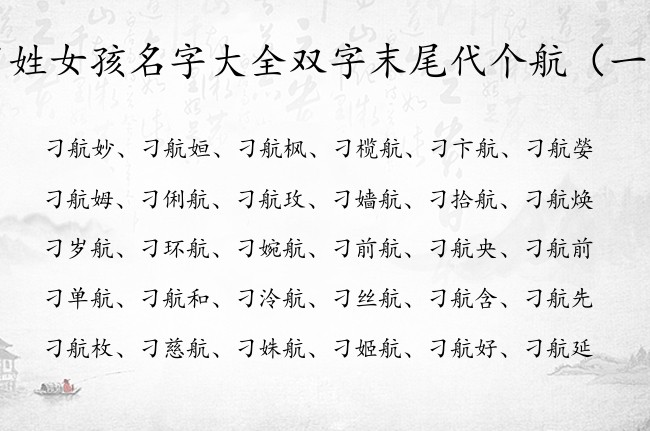 姓女孩名字大全双字末尾代个航（一
刁航妙、刁航姮、刁航枫、刁榄航、刁卞航、刁航嫈
刁航姆、刁俐航、刁航玫、刁嫱航、刁拾航、刁航焕
刁岁航、刁环航、刁婉航、刁前航、刁航央、刁航前
刁单航、刁航和、刁泠航、刁丝航、刁航含、刁航先
刁航枚、刁慈航、刁姝航、刁姬航、刁航好、刁航延